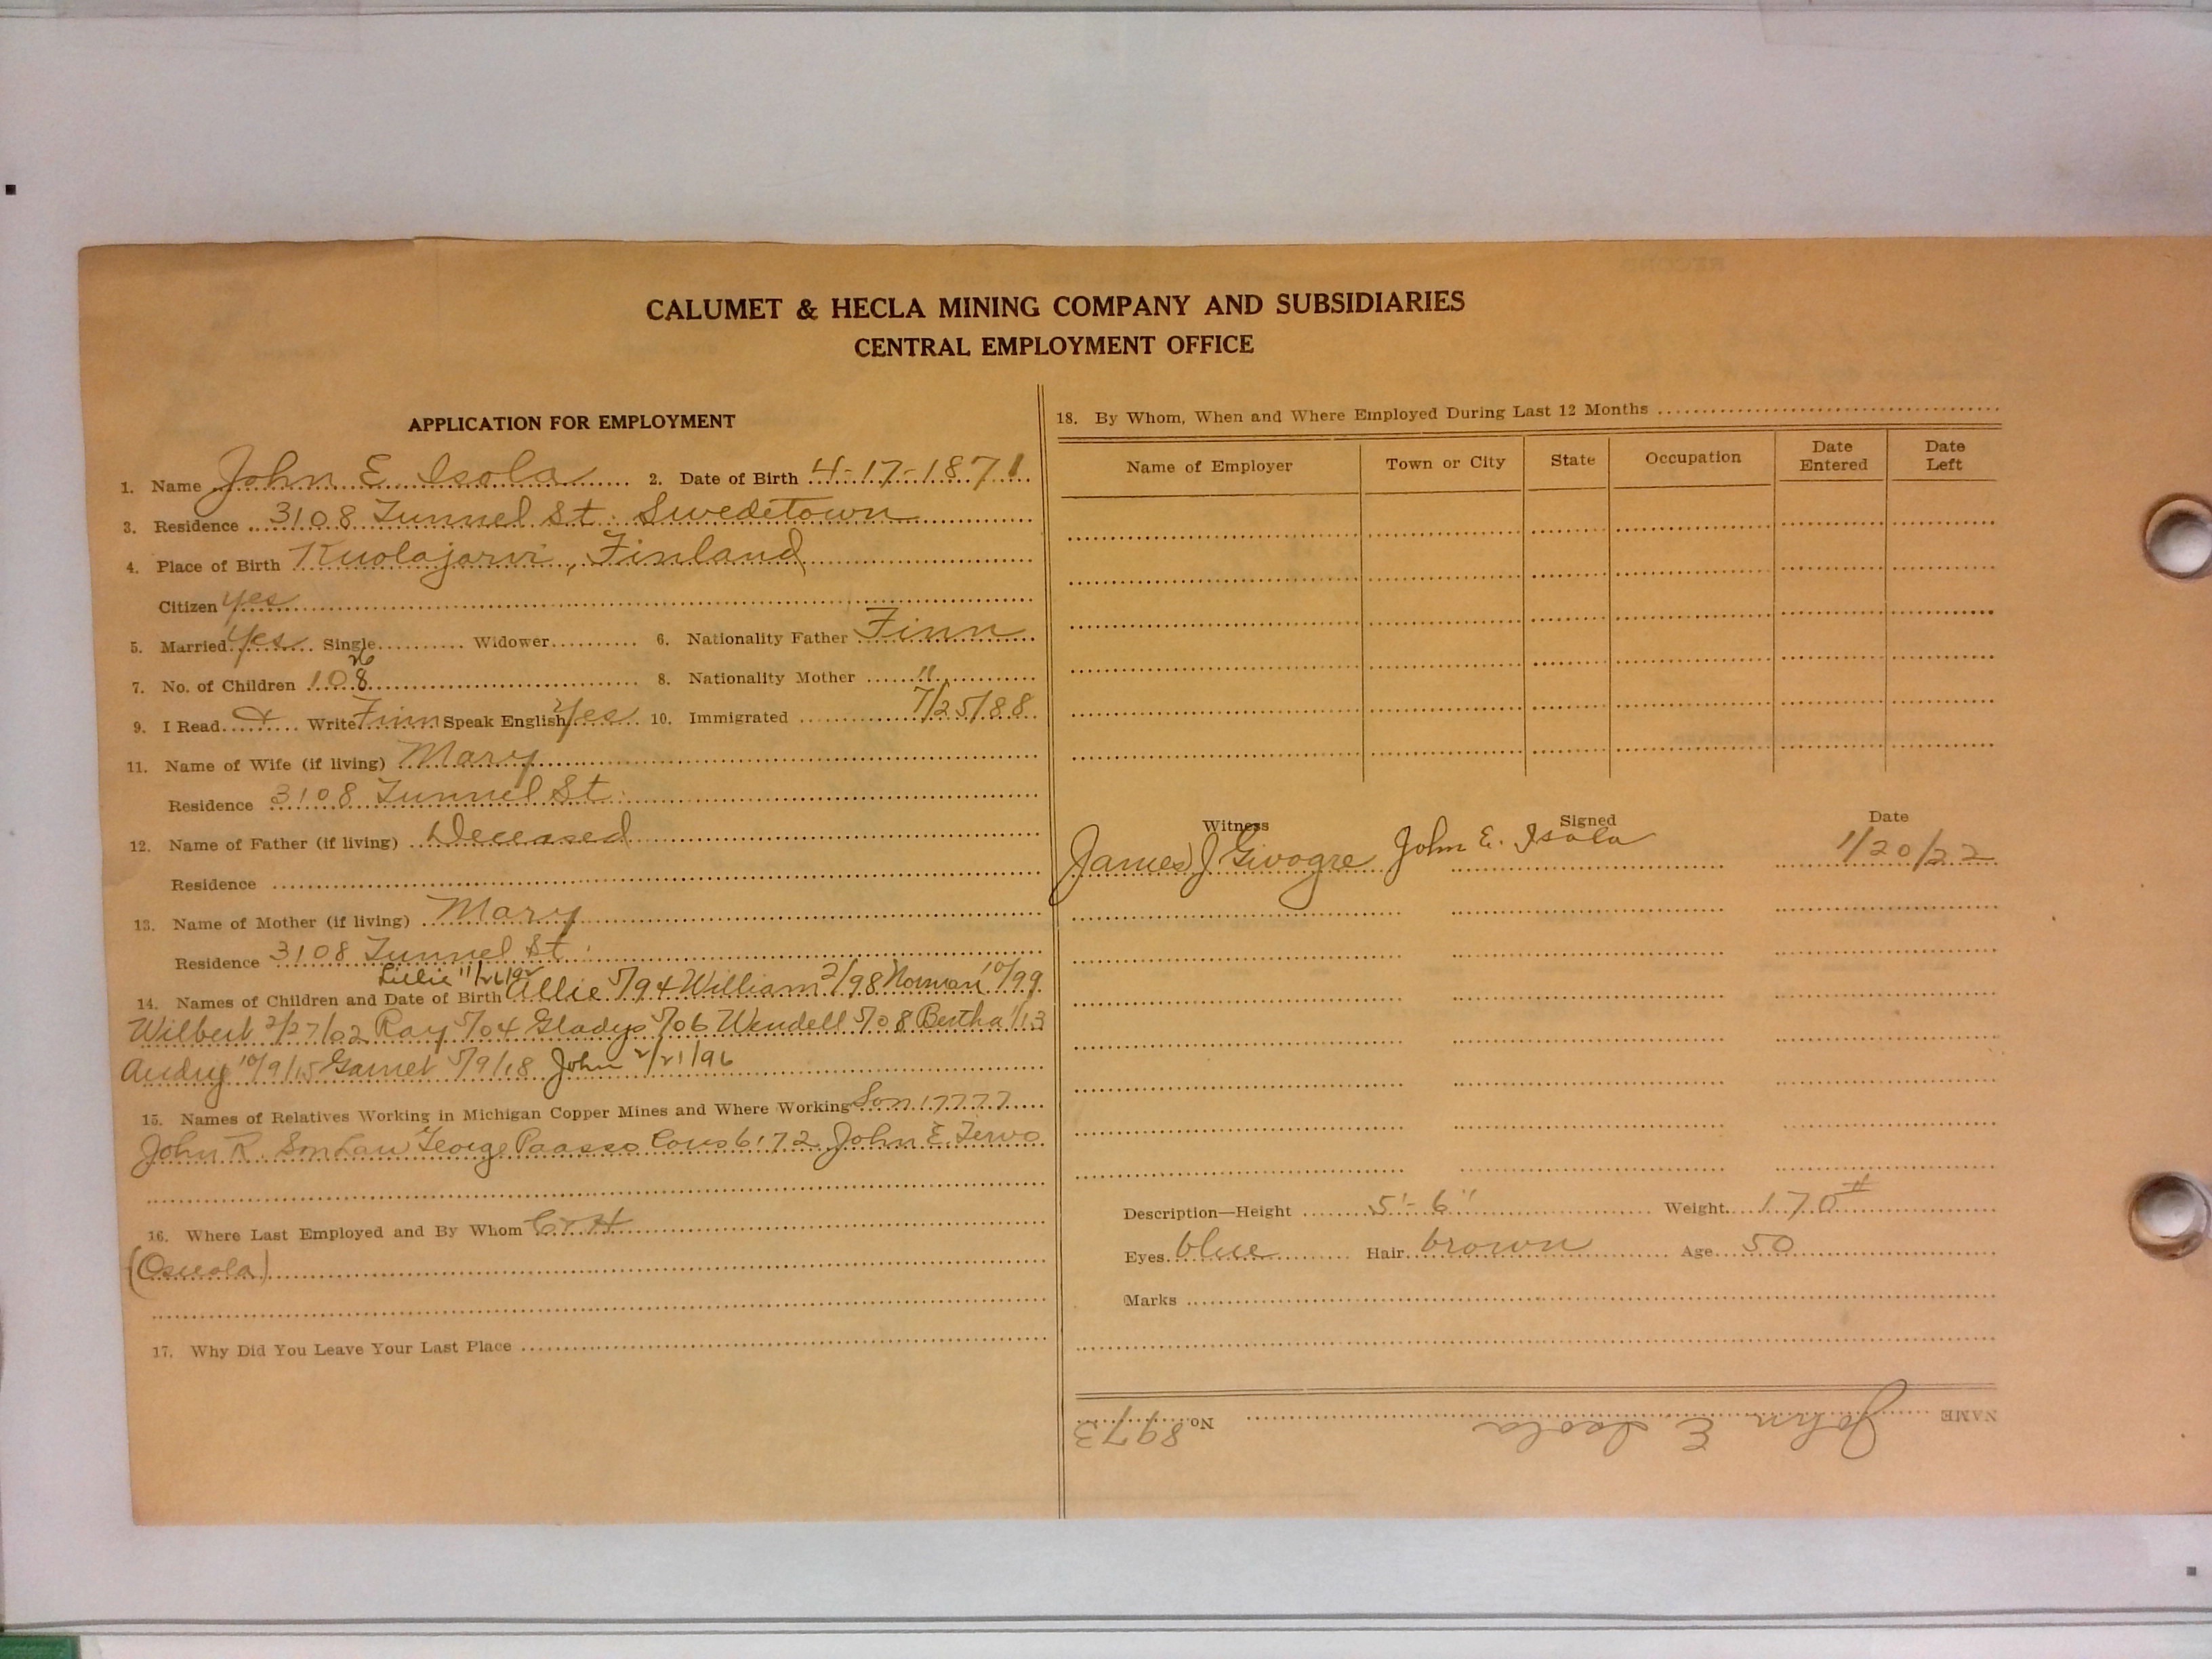 CALUMET & HECLA MINING COMPANY AND SUBSIDIARIES
CENTRAL EMPLOYMENT OFFICE
APPLICATION FOR EMPLOYMENT
1. Name John E Isola 2. Date of Birth 4-17-1871
3. Residence 3108 Tunnel St. Swedetown
4. Place of Birth Kuolajarvi, Finland
Citizen yes
5. Married Yes Single Widower 6. Nationality Father Finn
7. No. of Children 10 8
8. Nationality Mother "
9. I Read & Write Finn Speak English Yes 10. Immigrated 7/25/88
11. Name of Wife (if living) Mary
Residence 3108 Tunnel St.
12. Name of Father (if living) Deceased
Residence
13. Name of Mother (if living) Mary
Residence 3108 Tunnel St.
Lillie
14. Names of Children and Date of Birth Allie 5/94 William 2/98 Norman 10/99
Wilbert 2/27/02 Ray 5/04 Gladys 5/06 Wendell 5/08 Bertha 1/13
Audry 10/9/15 Garnet 5/9/18 John 2/21/96
15. Names of Relatives Working in Michigan Copper Mines and Where Working Son 17777
John R. Son Law George Paasso Cous 6172 John E. Tervo
16. Where Last Employed and By Whom C&H
(Osceola)
17. Why Did You Leave Your Last Place
18. By Whom, When and Where Employed During Last 12 Months
Name of Employer Town or City State Occupation Date Entered Date Left
Witness Signed Date
James J John E. Isola 1/20/22
Description—Height 5'-6" Weight 170#
Eyes blue Hair brown Age 50
Marks
NAME John E Isola No. 8973